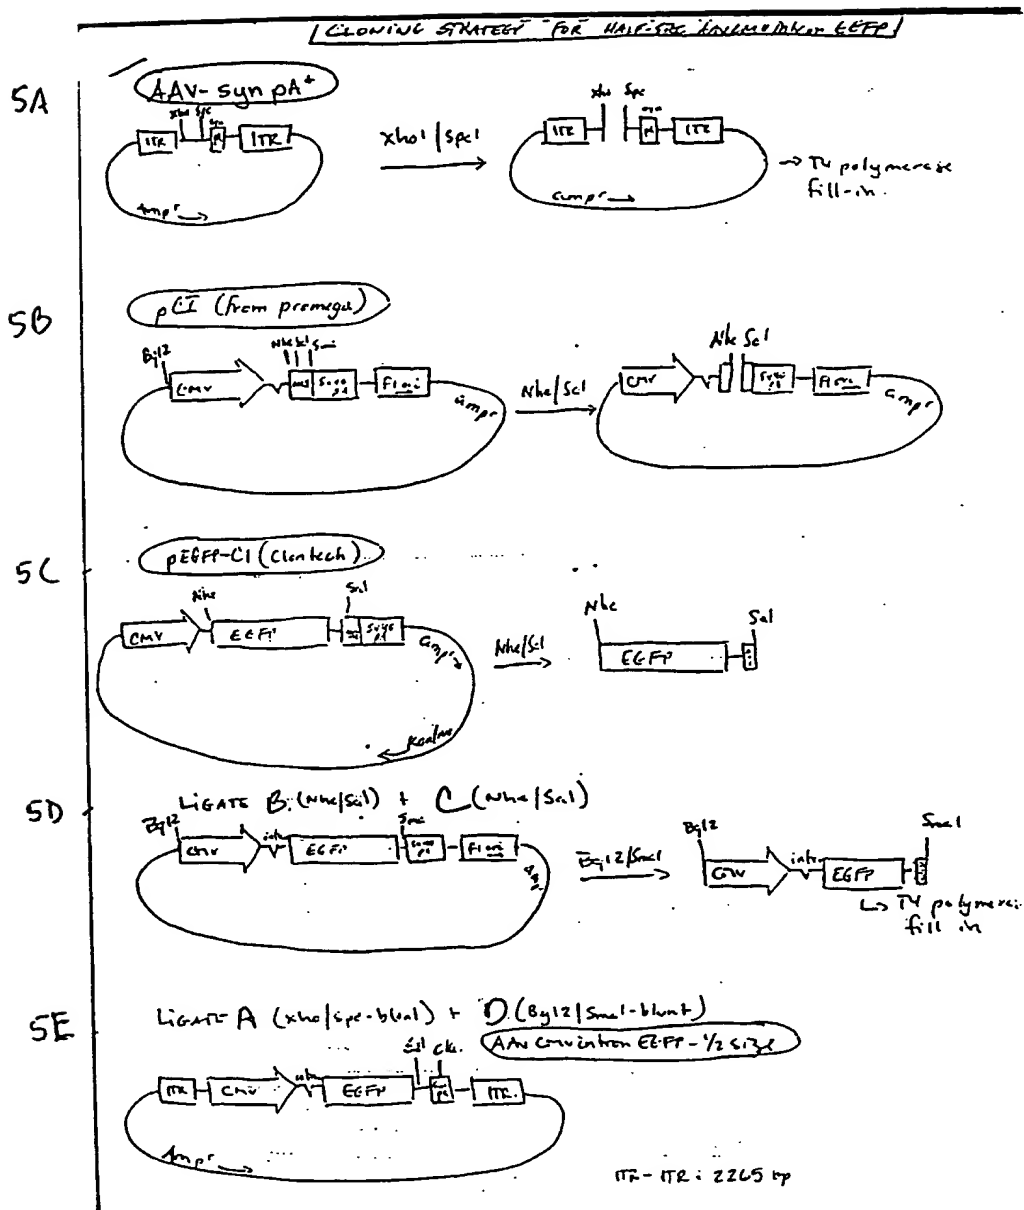 CLONING STRATEGY FOR HALF-SIZE EGFP
5A
AAV-syn pA+
Xho1 Spe
ITR pA ITR
Ampr
Xho1/Spe1
Xho Spe
ITR pA ITR
ampr
→ T4 polymerase
fill-in.
5B
pCI (from promega)
Bgl2
Nhe Sal Sma
CMV SV40 pA F1 ori
ampr
Nhe/Sal
Nhe Sal
CMV SV40 pA F1 ori
ampr
5C
pEGFP-C1 (Clontech)
Nhe Sal
CMV EGFP SV40 pA
ampr
Kan/neo
Nhe/Sal
Nhe Sal
EGFP
5D
LIGATE B. (Nhe/Sal) + C (Nhe/Sal)
Bgl2 intr Sma
CMV EGFP SV40 pA F1 ori
Amp
Bgl2/Sma1
Bgl2 intr Sma1
CMV EGFP
T4 polymerase
fill in
5E
LIGATE A (Xho/Spe-blunt) + D. (Bgl2/Sma1-blunt)
AAV CMV intron EGFP - 1/2 size
intr Sal Cla
ITR CMV EGFP pA ITR.
Ampr
ITR-ITR: 2265 bp